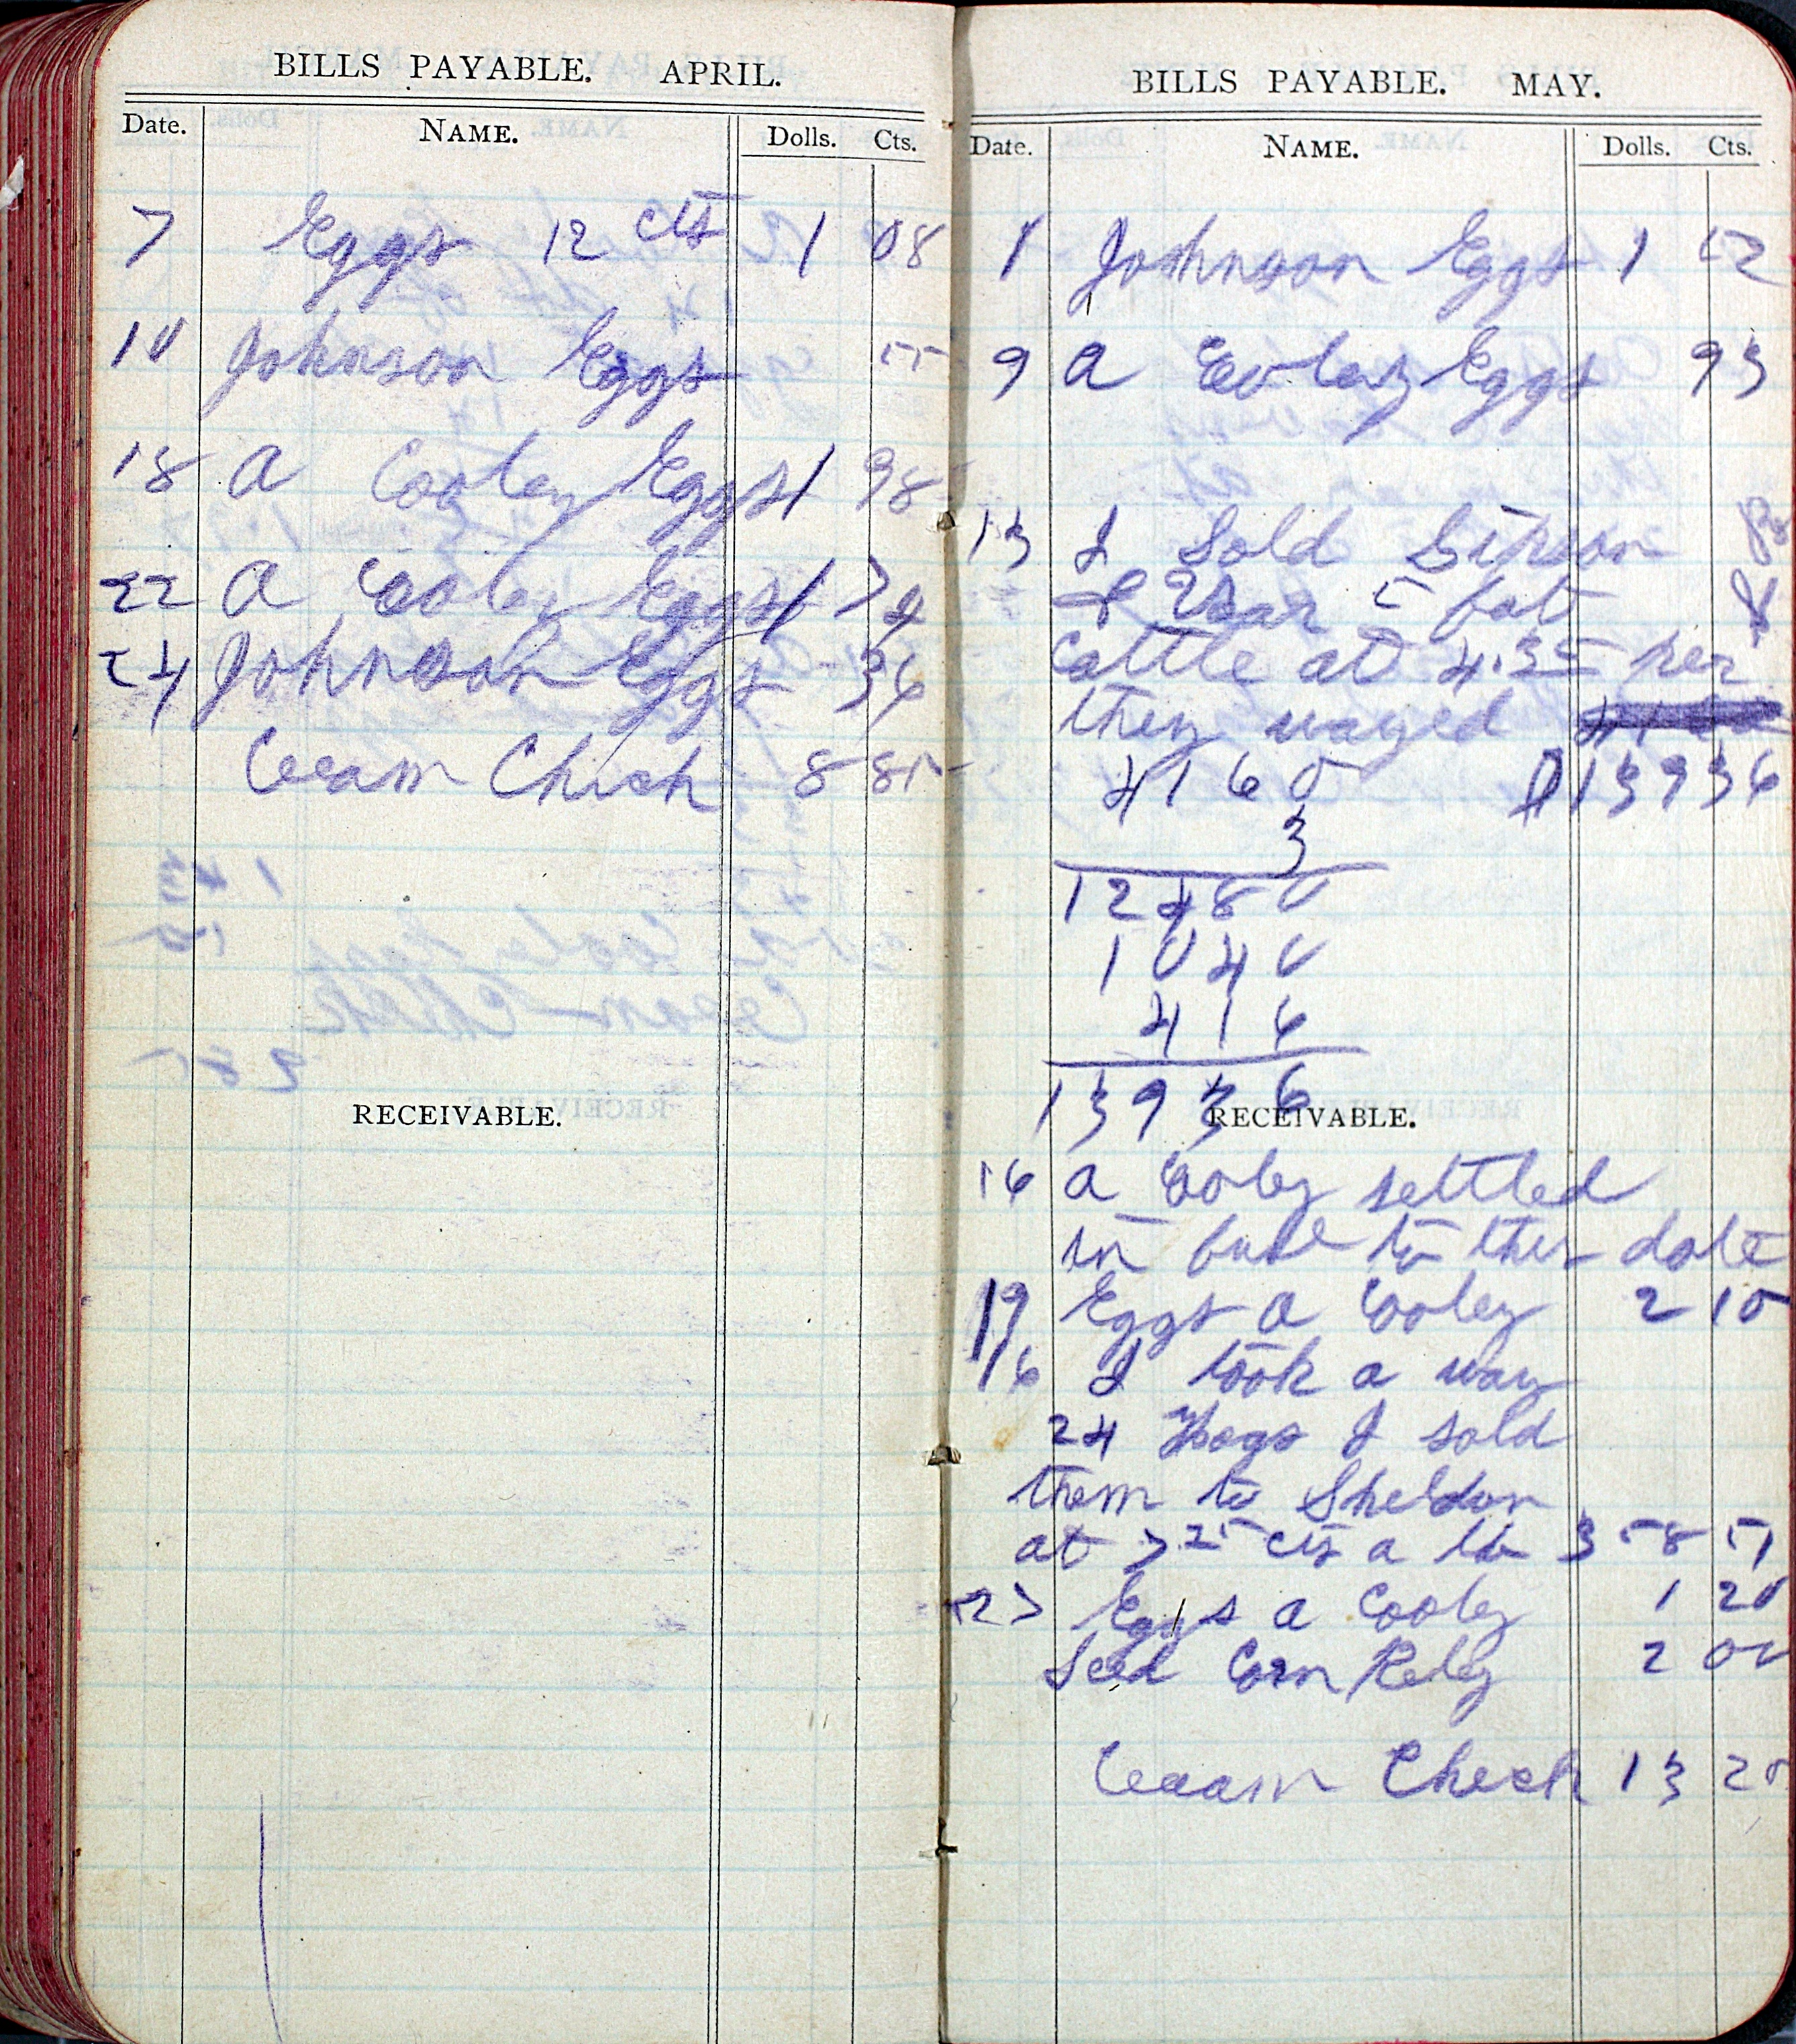 BILLS PAYABLE. APRIL.
Date. NAME. Dolls. Cts.
7 Eggs 12 cts 1 08
10 Johnson Eggs 55
18 A Cooley Eggs 1 98
22 A Cooley Eggs 1 74
24 Johnson Eggs 36
Ceam Chech 8 85
RECEIVABLE.
BILLS PAYABLE. MAY.
Date. NAME. Dolls. Cts.
1 Johnson Eggs 1 52
9 A Cooley Eggs 93
13 I Sold
5 fat
Cattle at 4.35 per
they wayed
4160 $139 36
3
12480
1040
416
13936
RECEIVABLE.
16 A Cooley settled
in full to this date
19 Eggs A Cooley 2 10
16 I took a way
24 Hogs I sold
them to Sheldon
at 7 25 cts a lb 3 58 51
27 Eggs A Cooley 1 20
Seed Corn 2 00
Ceaam Chech 13 20